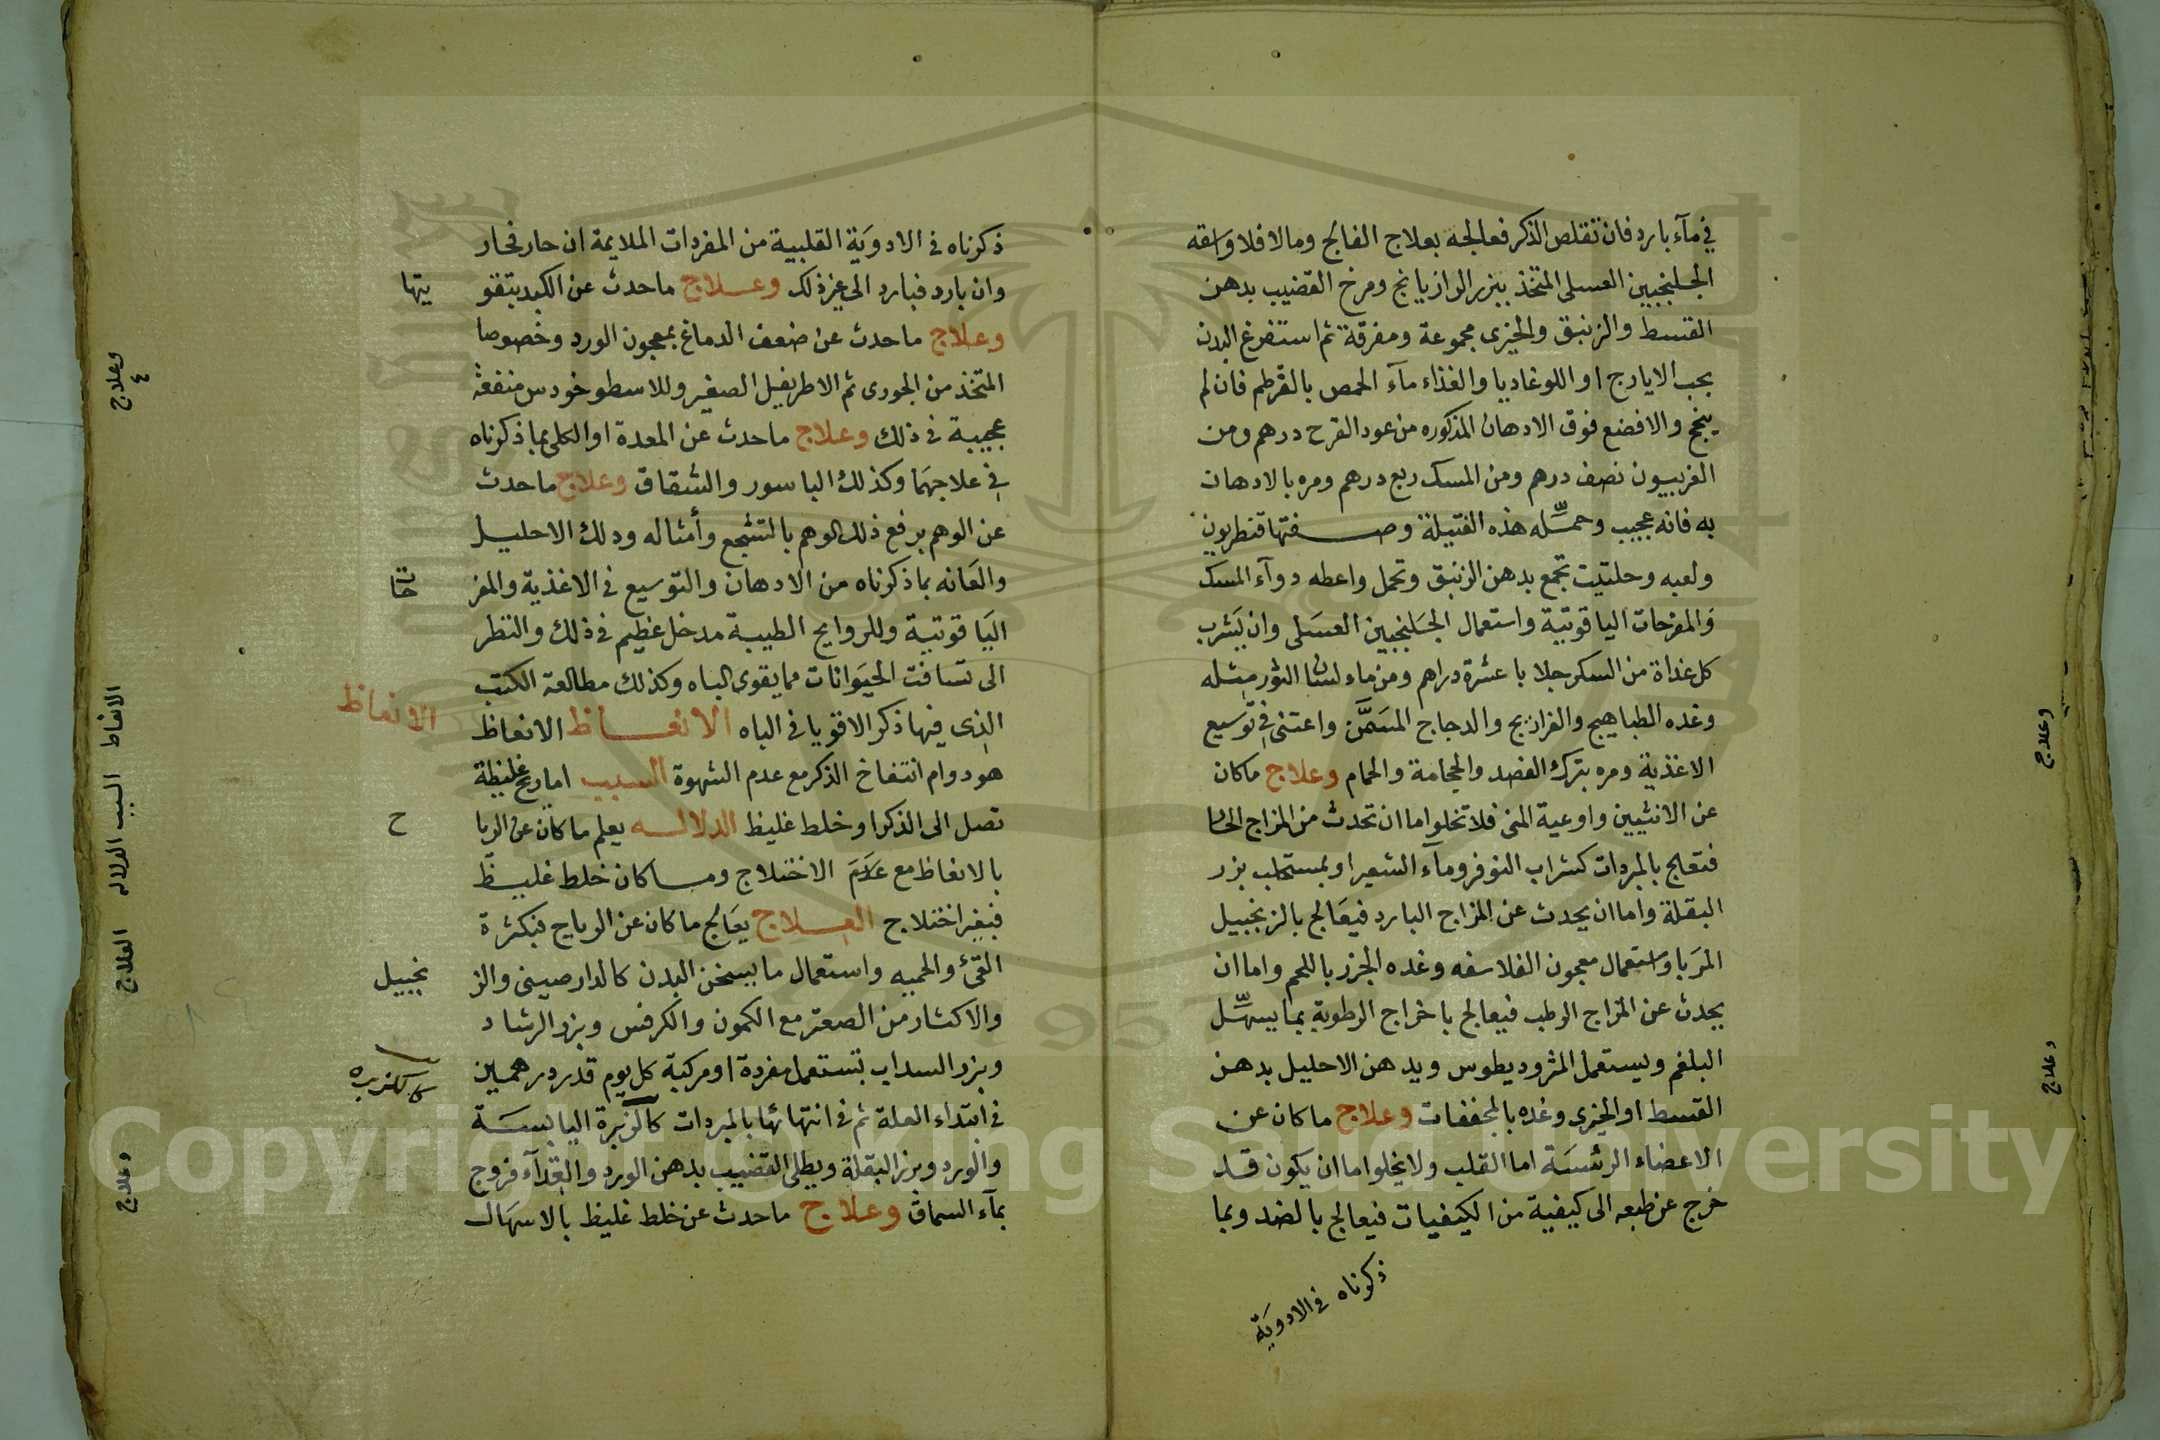 في مآء بارد فان تقلص الذكر فعالجه بعلاج الفالج ومالا فلا واسقه
الجلنجبين العسلى المتخذ ببزر الرازيانج ومرخ القضيب بدهن
القسط والزنبق والخيرى مجموعة ومفرقة ثم استفرغ البدن
بحب الايارج او اللوغاديا والغذاء مآء الحمص بالقرطم فان لم
ينجح والا فضع فوق الادهان المذكوره من عود القرح درهم ومن
الفربيون نصف درهم ومن المسك ربع درهم ومره بالادهان
به فانه عجيب وحمّله هذه الفتيلة وصفتها قنطريون
ولعبه وحلتيت تجمع بدهن الزنبق وتحمل واعطه دوآء المسك
والمفرحات الياقوتية واستعمال الجلنجبين العسلى وان يشرب
كل غداة من السكر جلابا عشرة دراهم ومن ماء لسان الثور مثله
وغده الطباهيج والفراريج والدجاج المسمّن واعتنى في توسيع
الاغذية ومره بترك الفصد والحجامة والحمام وعلاج ماكان
عن الانثيين واوعية المنى فلا تخلوا اما ان تحدث من المزاج الحار
فتعالج بالمبردات كشراب النوفر ومآء الشعير او بمستحلب بزر
البقلة واما ان يحدث عن المزاج البارد فيعالج بالزنجبيل
المربا واستعمال معجون الفلاسفه وغده الجزر باللحم واما ان
يحدث عن المزاج الرطب فيعالج باخراج الرطوبة بما يسهّل
البلغم ويستعمل المثروديطوس ويدهن الاحليل بدهن
القسط او الخيرى وغده بالمجففات وعلاج ماكان عن
الاعضاء الرئسة اما القلب ولا يخلوا اما ان يكون قد
خرج عن طبعه الى كيفية من الكيفيات فيعالج بالضد وبما
ذكرناه في الادوية
وعلاج
وعلاج
ذكرناه في الادوية القلبية من المفردات الملايمة ان حار فحار
وان بارد فبارد الى غير ذلك وعلاج ماحدث عن الكبد بتقو يتها
وعلاج ماحدث عن ضعف الدماغ بمعجون الورد وخصوصا
المتخذ من الجورى ثم الاطريفل الصغير وللاسطوخودس منفعة
عجيبة في ذلك وعلاج ماحدث عن المعدة او الكلى بما ذكرناه
في علاجهما وكذلك الباسور والشقاق وعلاج ماحدث
عن الوهم برفع ذلك الوهم بالتشجع وأمثاله ودلك الاحليل
والعانه بما ذكرناه من الادهان والتوسيع في الاغذية والمفر حات
الياقوتية وللروايح الطيبة مدخل عظيم في ذلك والنظر
الى تسافد الحيوانات مما يقوى الباه وكذلك مطالعة الكتب
الذى فيها ذكر الاقويا في الباه الانعاظ الانعاظ
الانعاظ
هو دوام انتفاخ الذكر مع عدم الشهوة السبب اما ريح غليظة
تصل الى الذكر او خلط غليظ الدلاله يعلم ماكان عن الريا ح
بالانعاظ مع علام الاختلاج وماكان خلط غليظ
فبغير اختلاج العلاج يعالج ماكان عن الرياح فبكثرة
القئ والحميه واستعمال مايسخن البدن كالدارصينى والز نجبيل
والاكثار من الصعتر مع الكمون والكرفس وبزر الرشاد
وبزر السداب تستعمل مفردة او مركبة كل يوم قدر درهمين
في ابتداء العلة ثم في انتهائها بالمبردات كالزبرة اليابسة
كالكزبره
والورد وبزر البقلة ويطلى القضيب بدهن الورد والغدآء فروج
بمآء السماق وعلاج ماحدث عن خلط غليظ بالاسهال
وعلاج ٤
الانعاظ السبب الدلاله العلاج
وعلاج
1957
Copyright © King Saud University